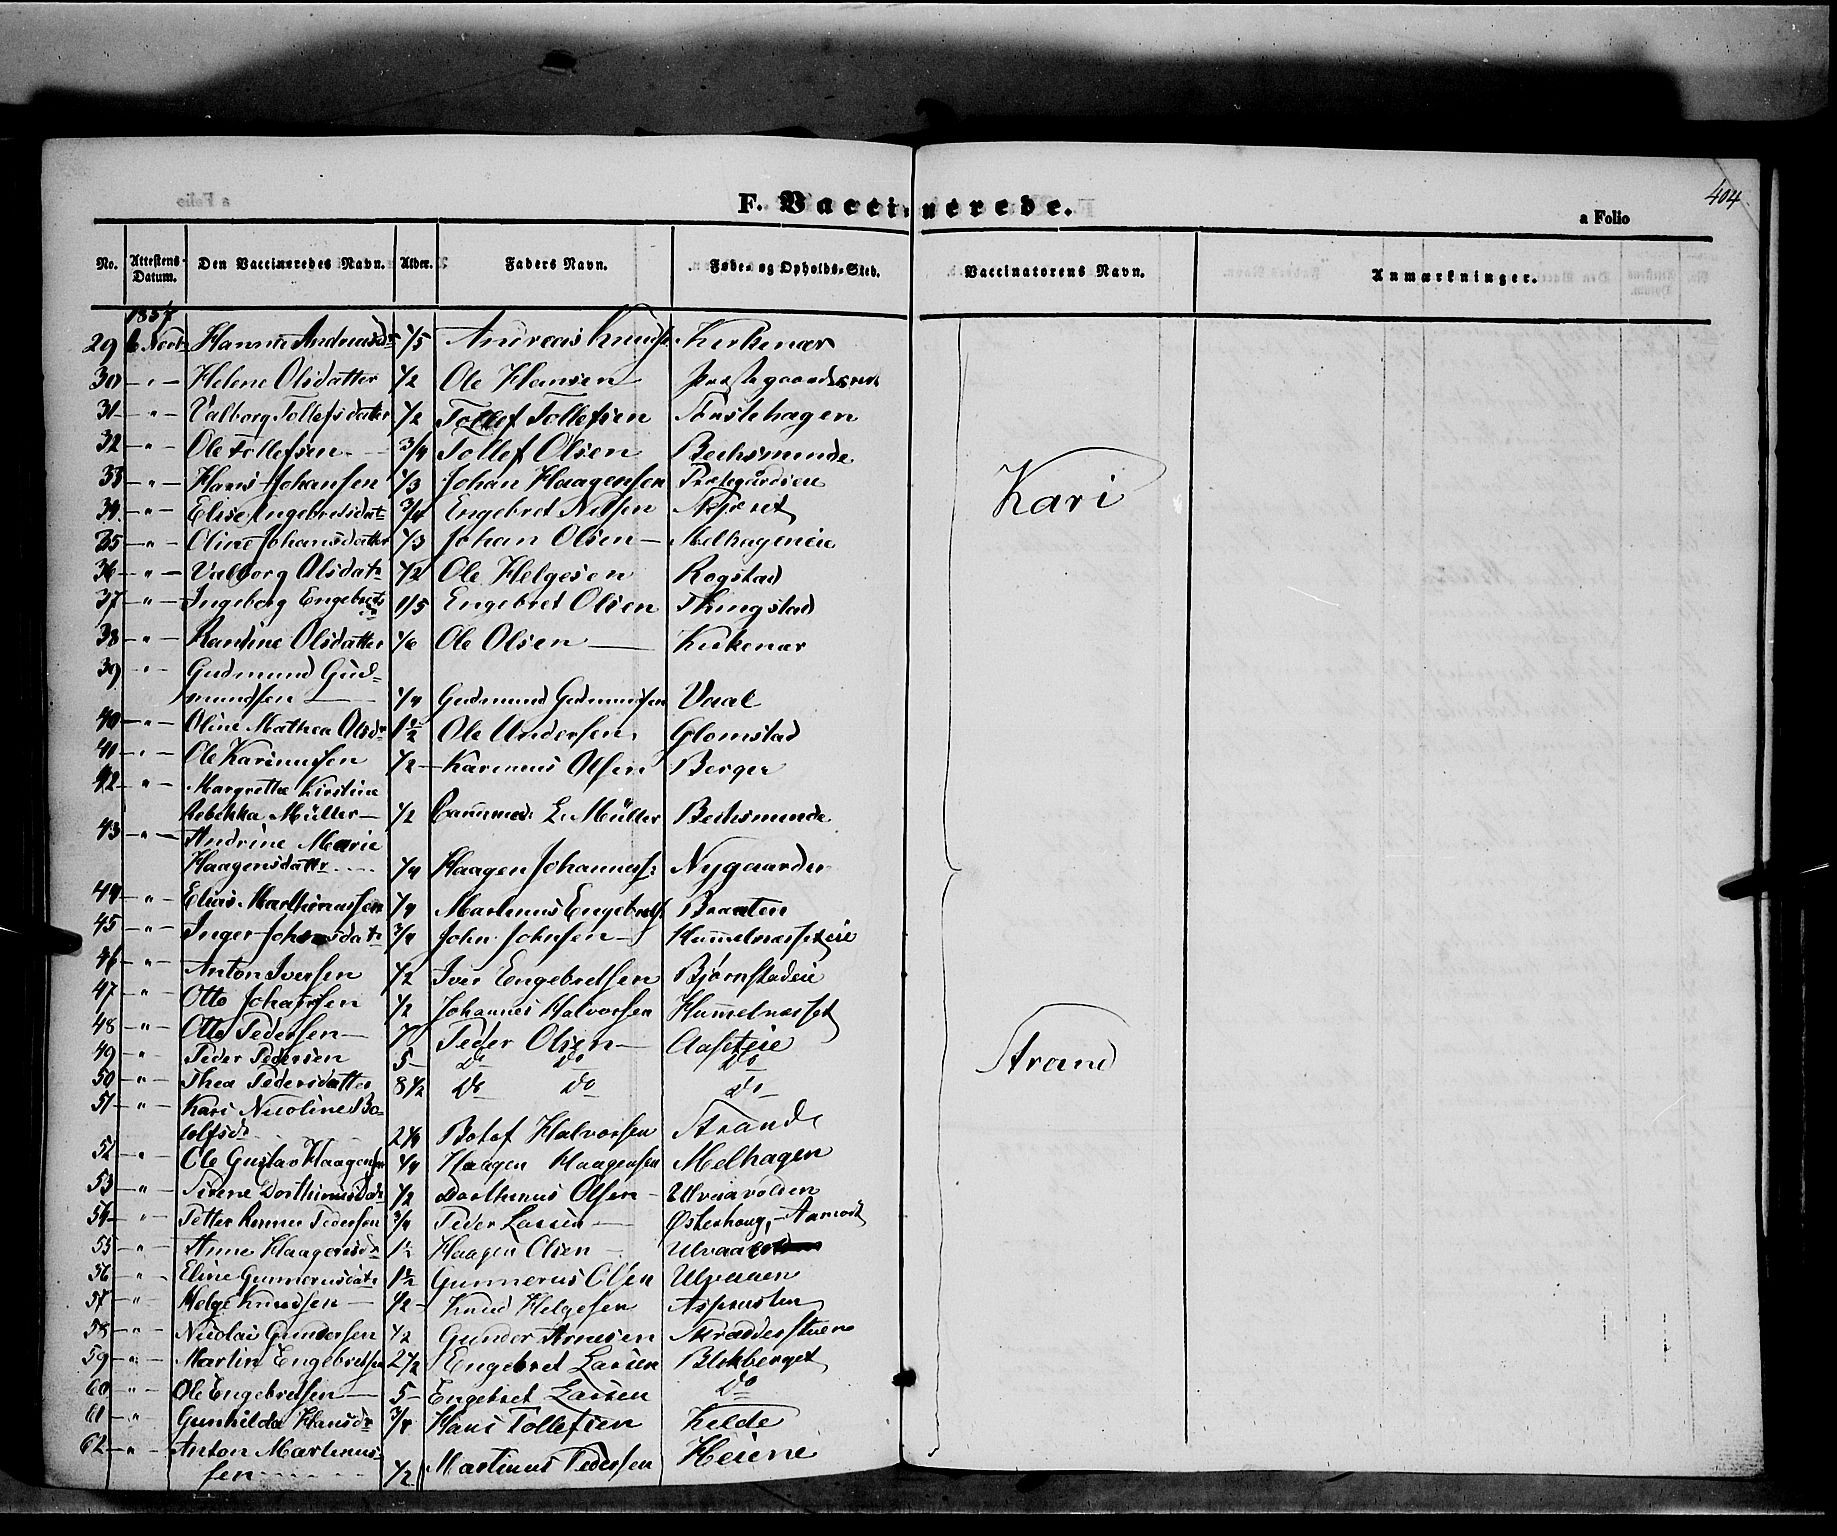 404
F. Vaccinerede.
a Folio
No. Attestens Datum. Den Vaccineredes Navn. Alder. Faders Navn. Føde- og Opholds-Sted. Vaccinatorens Navn. Anmærkninger.
1857
29 6 Novbr Hanna Andreasdr 1/5 Andreas Knuds: Kirkenær
30 - " - Helene Olsdatter 1/2 Ole Hansen Præstegaards
31 - " - Valborg Tollefsdatter 1/2 Tollef Tollefsen
32 - " - Ole Tollefsen 3/4 Tollef Olsen Bechsminde
33 - " - Hans Johansen 1/3 Johan Haagensen
34 - " - Elise Engebretsdatr 3/4 Engebret Nilsen Skjæret
35 - " - Oline Johansdatter 1/3 Johan Olsen - Melhageneie
36 - " - Valborg Olsdatr 1/2 Ole Helgesen Rogstad
37 - " - Ingeborg Engebretsdr 1/5 Engebret Olsen Thingstad
38 - " - Olsdatter 1/6 Ole Olsen Kirkenær
39 - " - Gudmund Gud-
mundsen 1/4 Gudmund Gudmundsen Vaal
40 - " - Oline Mathea Olsdr 1 1/2 Ole Andersen Glomstad
41 - " - Ole Karinusen 1/2 - Karinus Olsen Berger
42 - " - Margrethe Kirstine
Rebekka Müller - 1/2 L. Müller Bechsminde
43 - " - Andrine Marie
Haagensdattr 1/4 Haagen Johanness: Nygaarder
44 - " - Elias Marthinussen 1/4 Marthinus Engebrets: Braaten
45 - " - Inger Johnsdatr 3/4 John Johnsen - Hummelnæsseteie
46 - " - Anton Iversen 1/2 Iver Engebretsen Bjørnstadeie
47 - " - Otto Johansen 1/2 Johannes Halvorsen Hummelnæsset
48 - " - Otto Pedersen - 7 Peder Olsen - Aaseteie
49 - " - Peder Pedersen 5 - Do Do Do
50 - " - Thea Pedersdatter 8 1/2 Do Do Do
51 - " - Kari Nicoline Bo-
tolfsdr Botof Halvorsen Strand
52 - " - Ole Gustav Haagensen 1/4 Haagen Haagensen Melhagen
53 - " - Sirene Dorthinusdr 1/2 Dorthinus Olsen - Ulvaavolden
54 - " - Petter Pedersen 3/4 Peder Larsen Østerhoug, Aamodt
55 - " - Anne Haagensdr 1 1/2 Haagen Olsen - Ulvaa
56 - " - Eline Gunnerusdatr 1 1/2 Gunnerus Olsen Ulvaaen
57 - " - Helge Knudsen 1/2 - Knud Helgesen
58 - " - Nicolai Gundersen 1/2 Gunder Arnesen Skrædderstuen
59 - " - Martin Engebretsen 2 1/2 Engebret Larsen Blokberget
60 - " - Ole Engebretsen 5 - Engebret Larsen Do
61 - " - Gunhilda Hansdr 3/4 Hans Tollefsen Kelde
62 - " - Anton Martinus-
sen 1/2 Martinus Pedersen Heiene
Kari
Strand